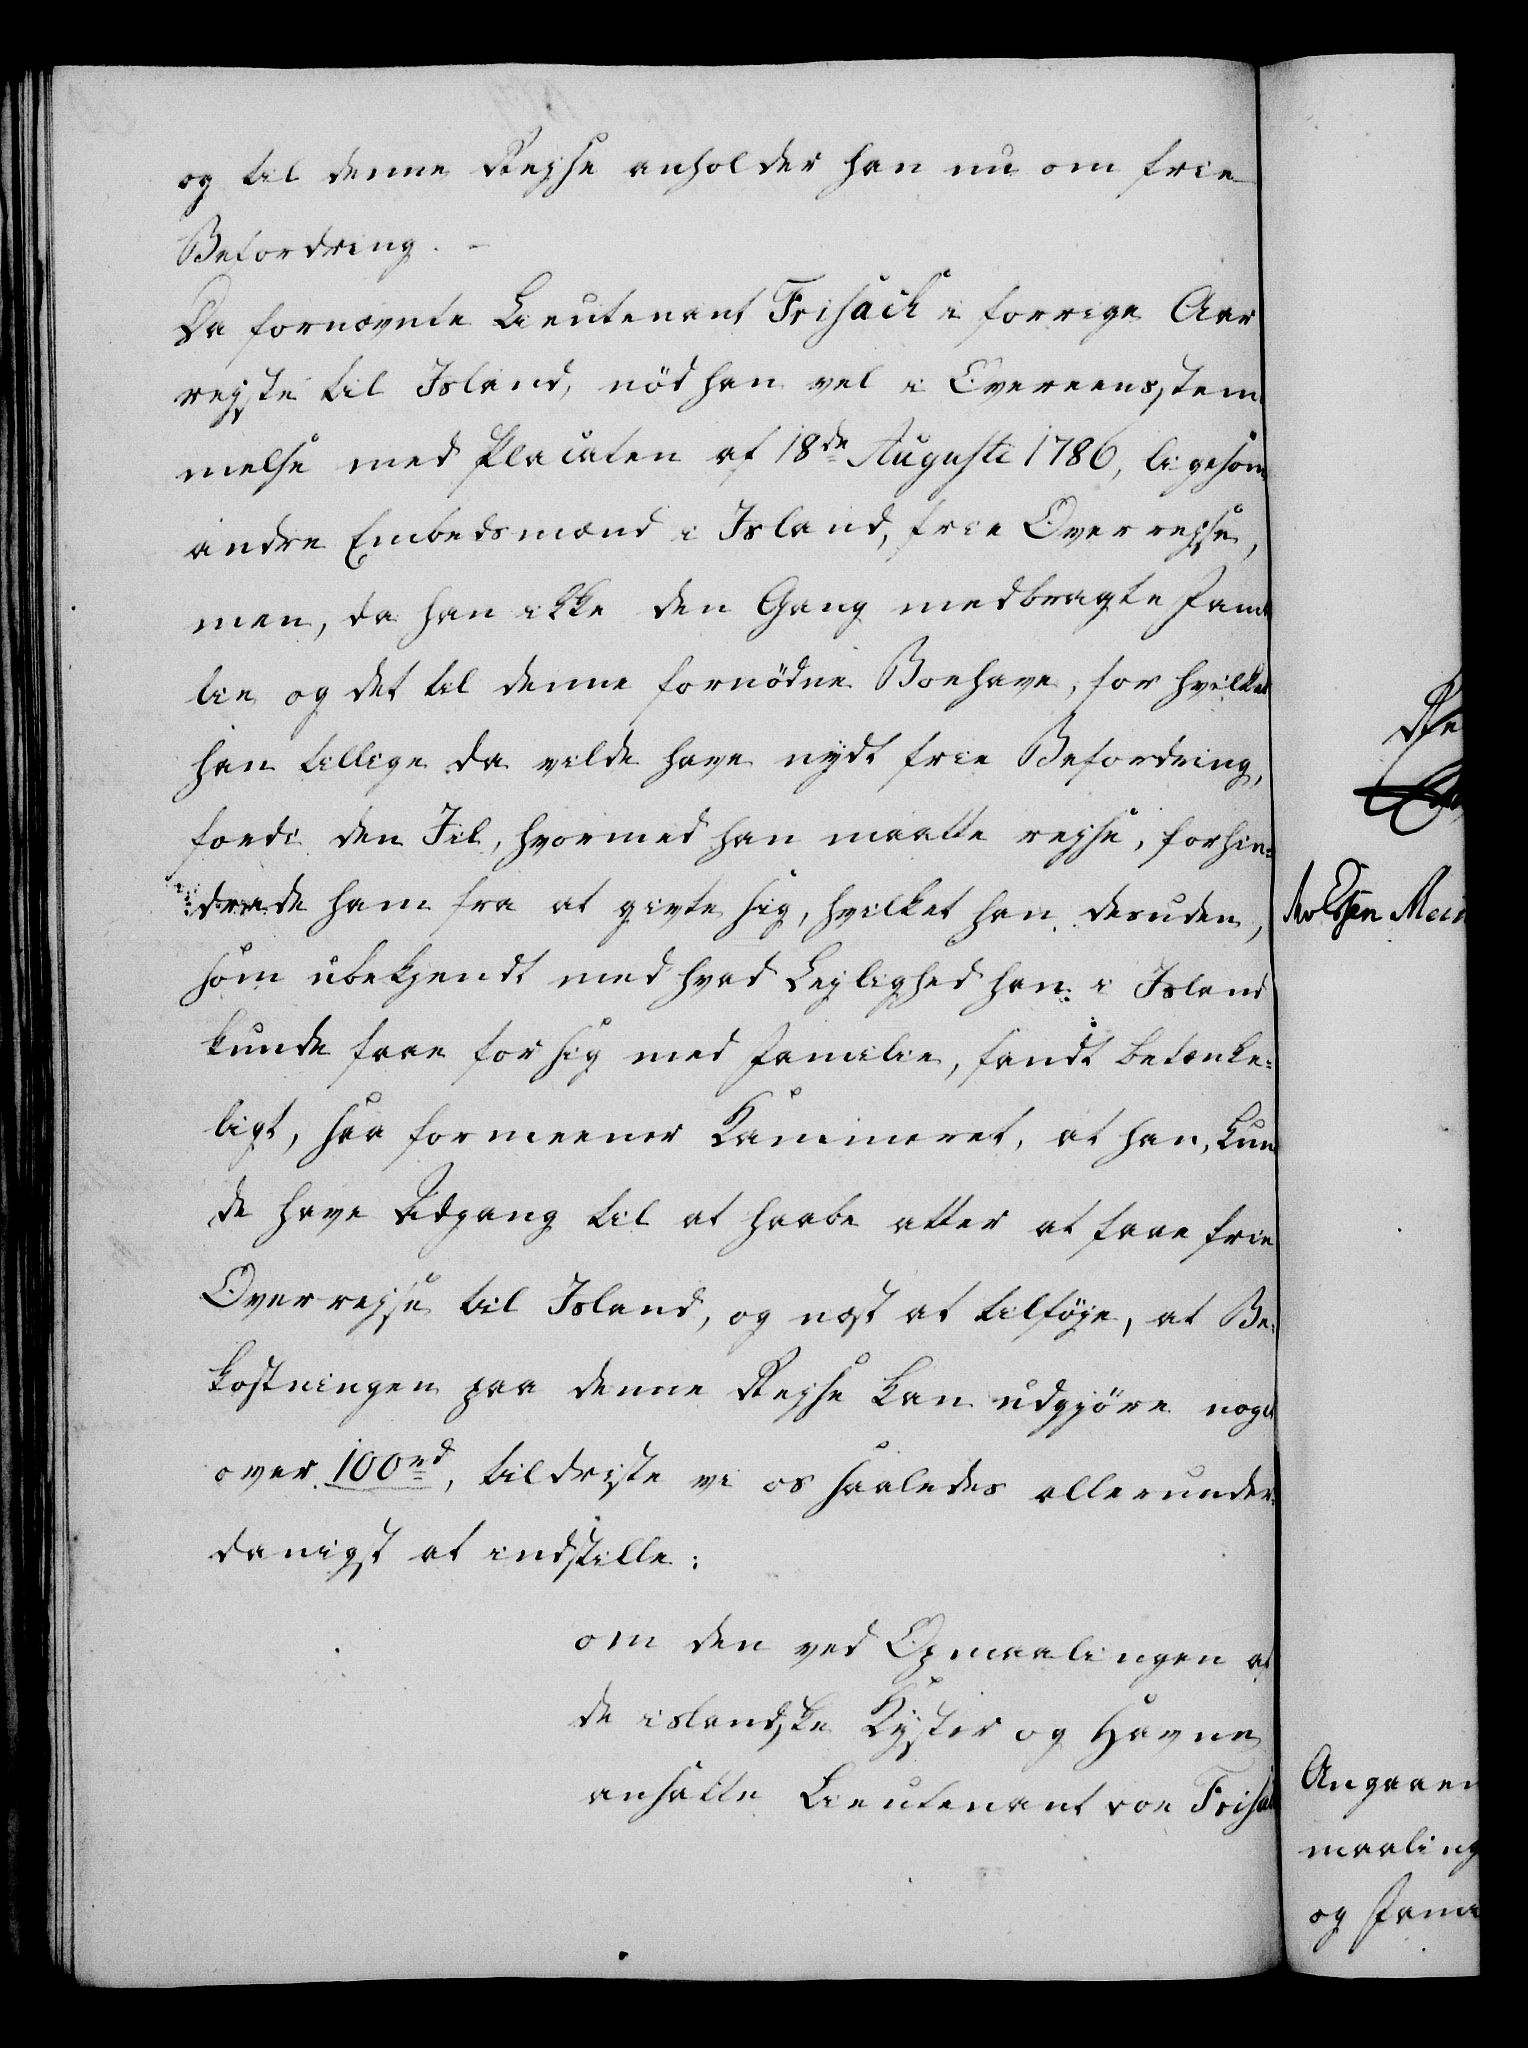 og til denne Rejse anholder han nu om frie
Befordring. -
Da fornævnte Lieutenant Frisach i forrige Aar
rejste til Island, nød han vel i Overeensstem
melse med Placaten af 18de Augusti 1786, ligesom
andre Embedsmænd i Island, frie Overrejse,
men, da han ikke den Gang medbragte Fami
lie og det til denne fornødne Boehave, for hvilket
han tillige da vilde have nydt frie Befordring,
fordi den Iil, hvormed han maatte rejse, forhin=
drede ham fra at givte sig, hvilket han desuden,
som ubekjendt med hvad Lejlighed han i Island
kunde faae for sig med Familie, fandt betænke=
ligt, saa formeener Kammeret, at han kun
de have Adgang til at haabe atter at faae frie
Overrejse til Island, og næst at tilføje, at Be=
kostningen paa denne Rejse kan udgjøre noget
over 100rd, tildriste vi os saaledes allerunder=
danigst at indstille:
om den ved Opmaalingen af
de islandske Kyster og Havne
ansatte Lieutenant von Frisa
Angaaen
maaling
og Fami